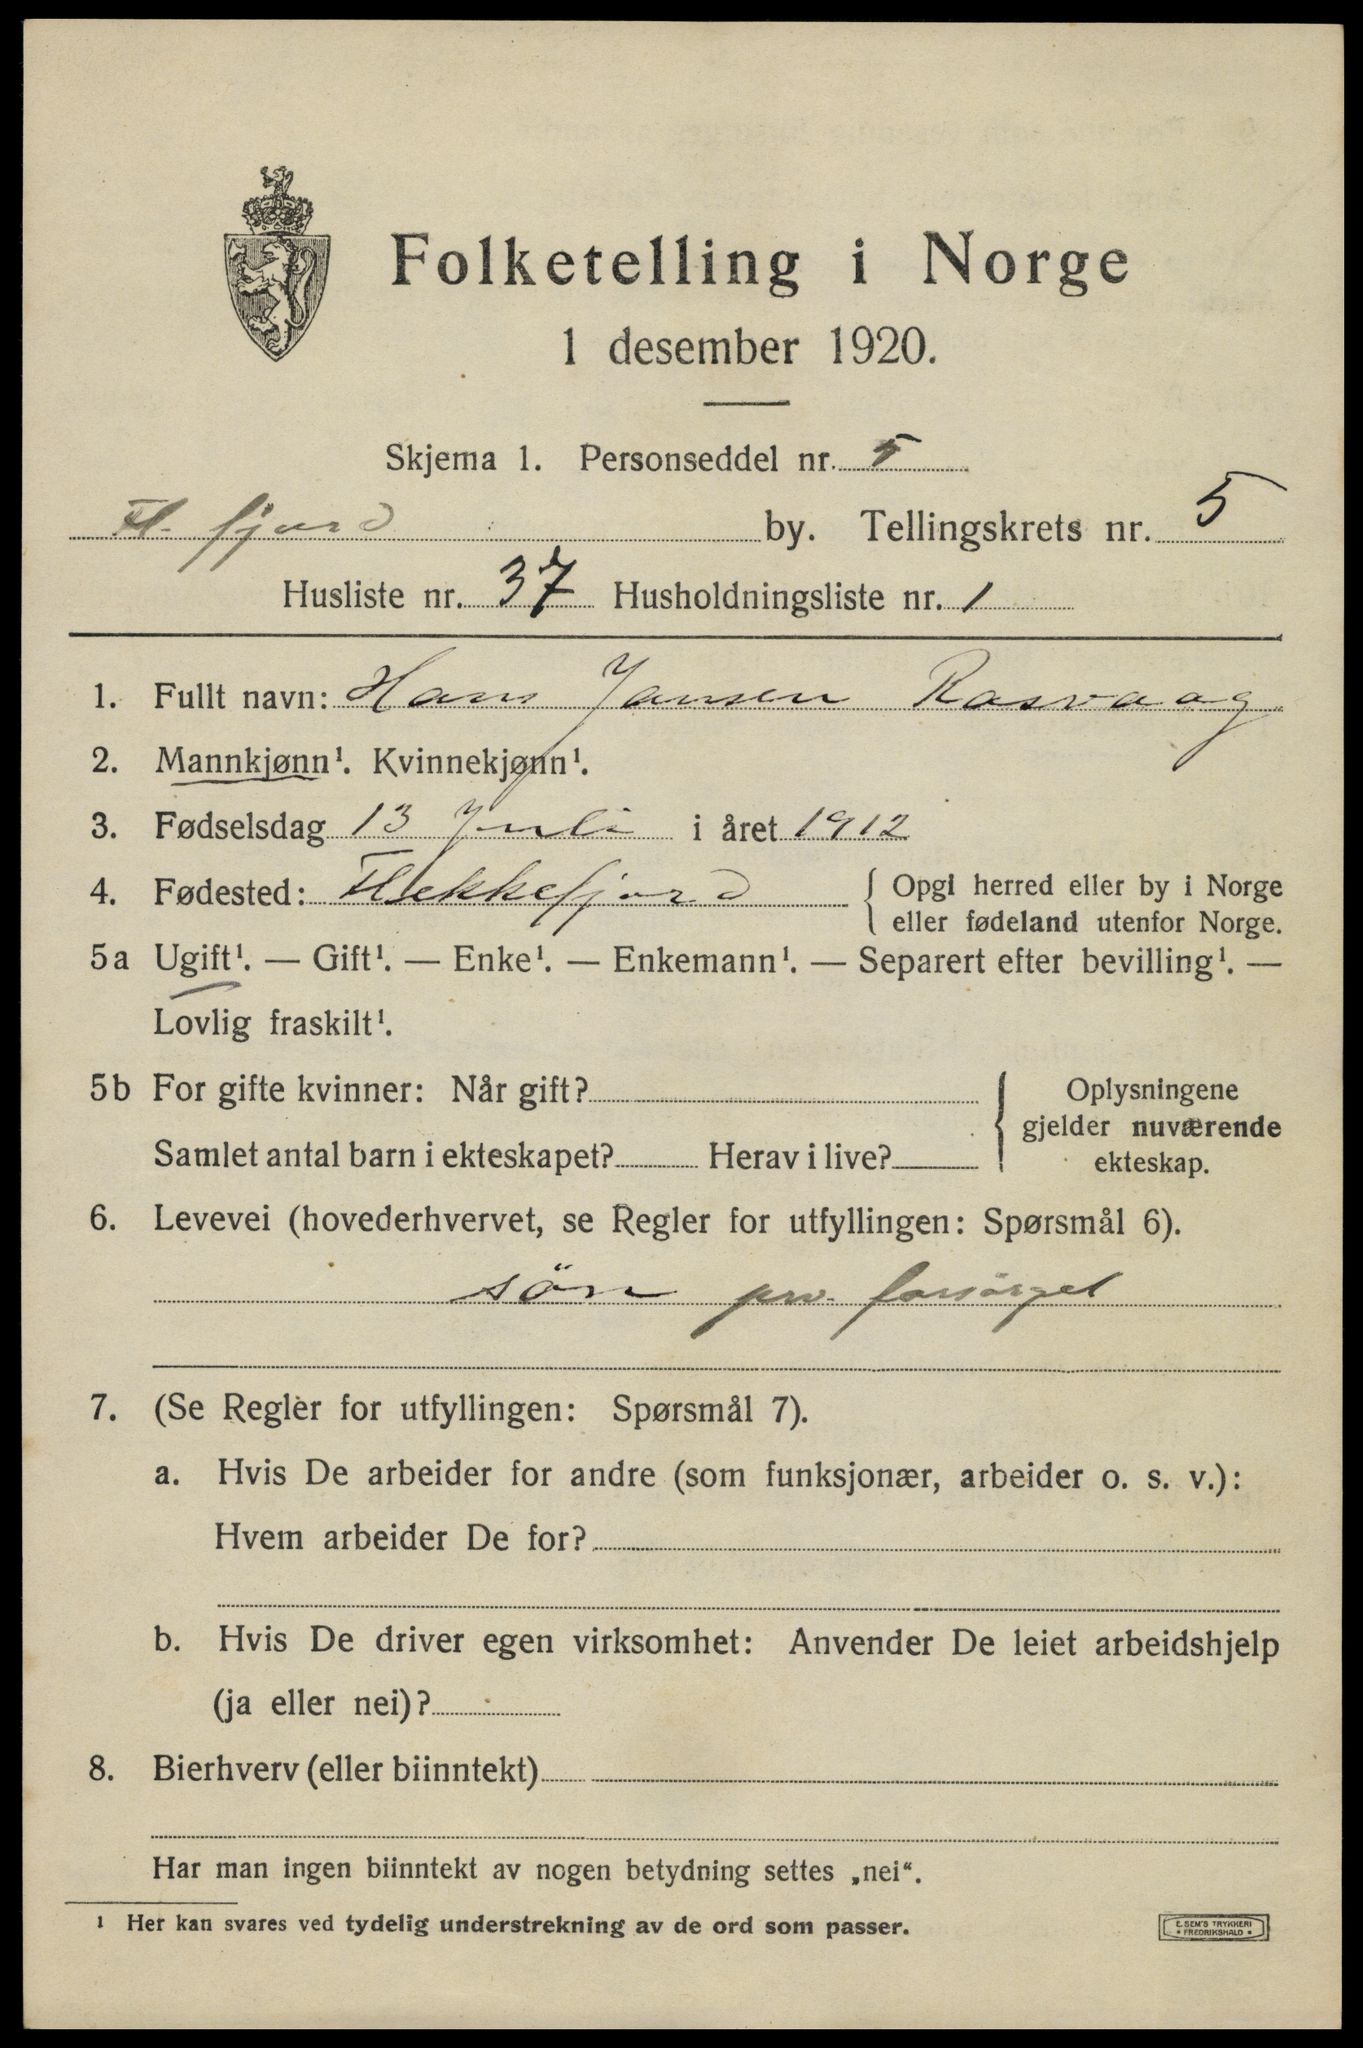 Folketelling i Norge
1 desember 1920.
Skjema 1. Personseddel nr. 5
Fl. fjord by. Tellingskrets nr. 5
Husliste nr. 37 Husholdningsliste nr. 1
1. Fullt navn: Hans Jansen Rasvaag
2. Mannkjønn¹. Kvinnekjønn¹.
3. Fødselsdag 13 Juli i året 1912
4. Fødested: Flekkefjord { Opgi herred eller by i Norge
eller fødeland utenfor Norge.
5a Ugift¹. — Gift¹. — Enke¹. — Enkemann¹. — Separert efter bevilling¹. —
Lovlig fraskilt¹.
5b For gifte kvinner: Når gift? { Oplysningene
gjelder nuværende
Samlet antal barn i ekteskapet? Herav i live? ekteskap.
6. Levevei (hovederhvervet, se Regler for utfyllingen: Spørsmål 6).
sön prv. forsörget
7. (Se Regler for utfyllingen: Spørsmål 7).
a. Hvis De arbeider for andre (som funksjonær, arbeider o. s. v.):
Hvem arbeider De for?
b. Hvis De driver egen virksomhet: Anvender De leiet arbeidshjelp
(ja eller nei)?
8. Bierhverv (eller biinntekt)
Har man ingen biinntekt av nogen betydning settes „nei“.
¹ Her kan svares ved tydelig understrekning av de ord som passer.
E. SEM'S TRYKKERI
* FREDRIKSHALD *